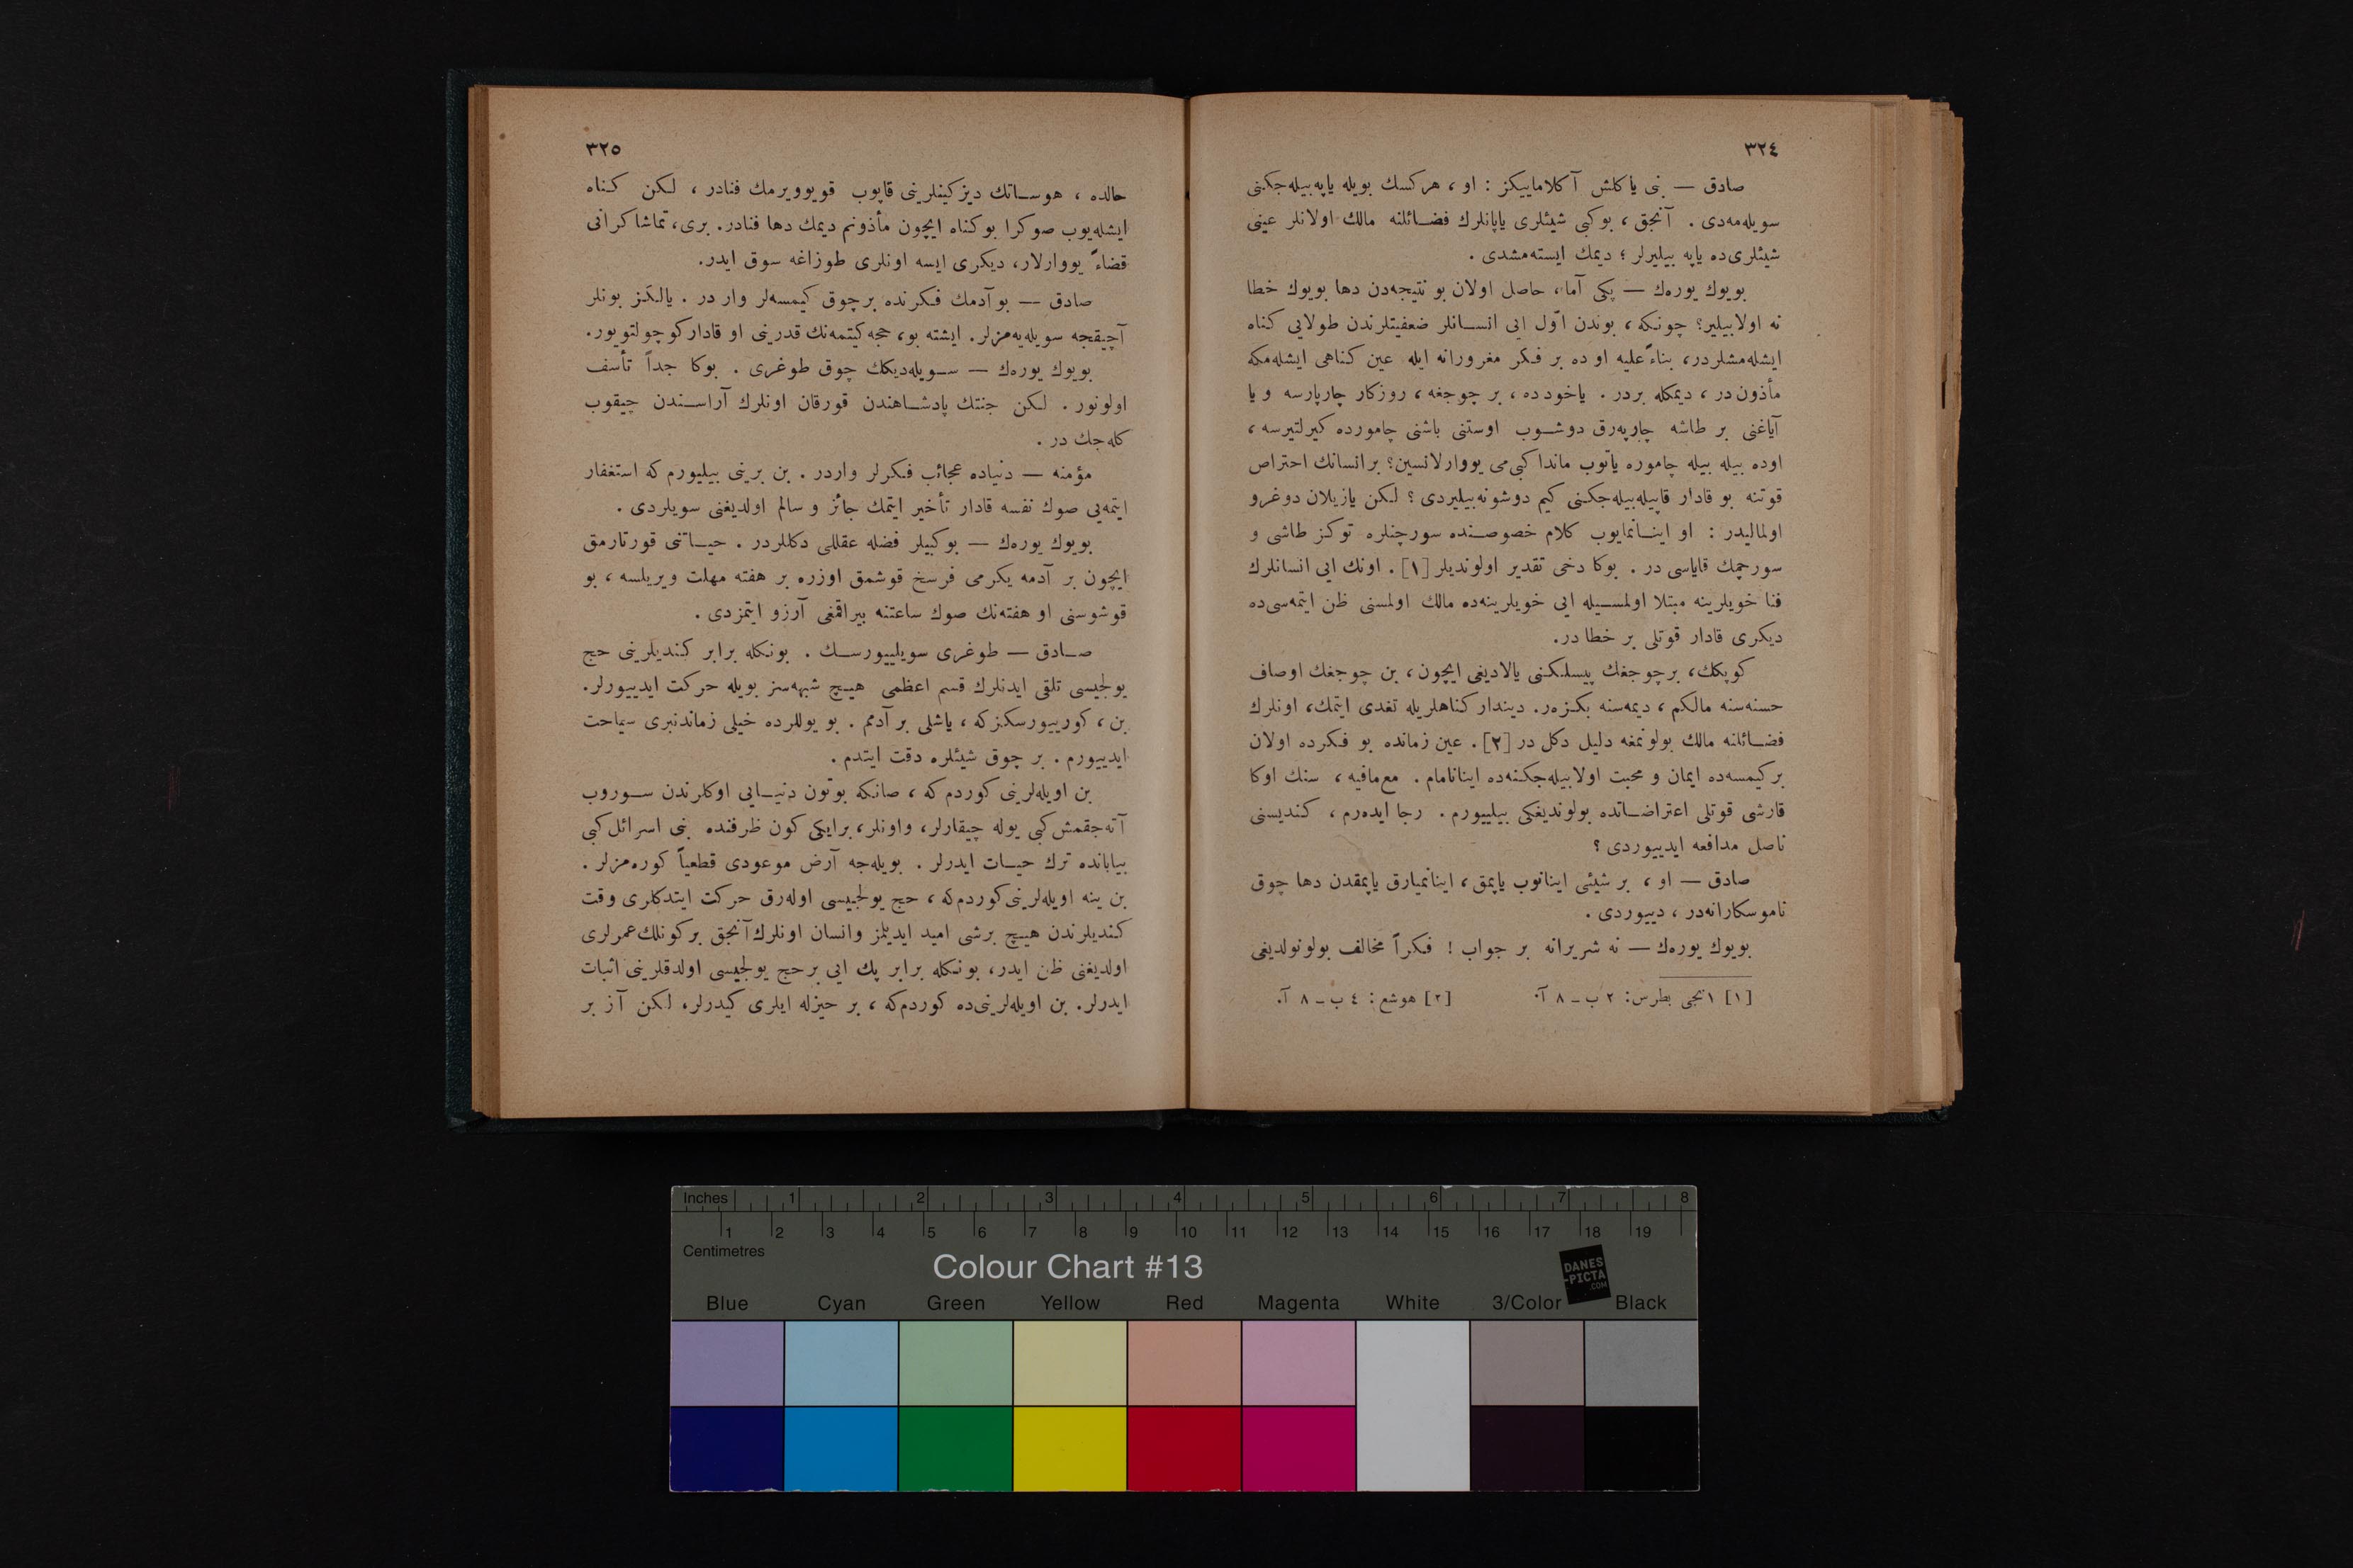 ٣٢٤
صادق — بنی یاكلش آكلامایيكز : او ، هركسك بویله یاپه‌بیله‌جكنی
سویله‌مه‌دی . آنجق ، بوكبی شیئلری یاپانلرك فضائلنه مالك اولانلر عینی
شیئلری‌ده یاپه بیلیرلر ؛ دیمك ایسته‌مشدی .
بویوك یوره‌ك — پكی آما ، حاصل اولان بو نتیجه‌دن دها بویوك خطا
نه اولابیلیر؟ چونكه ، بوندن اوّل ایی انسانلر ضعفیتلرندن طولایی كناه
ایشله‌مشلردر، بناءً علیه او ده بر فكر مغرورانه ایله عین كناهی ایشله‌مكه
مأذون در ، دیمكله بردر . یاخود ده ، بر چوجغه ، روزكار چارپارسه و یا
آیاغنی بر طاشه چارپه‌رق دوشوب اوستنی باشنی چاموردە كیرلتیرسه ،
اوده بیله بیله چاموره یاتوب ماندا كبی‌می یووارلانسین؟ بر انسانك احتراص
قوتنه بو قادار قاپیله‌بیله‌جكنی كیم دوشونه‌بیلیردی ؟ لكن یازیلان دوغرو
اولمالیدر : او اینانمایوب كلام خصوصنده سورچنلره توكز طاشی و
سورچمك قایاسی در . بوكا دخی تقدیر اولوندیلر [١] . اونك ایی انسانلرك
فنا خویلرینه مبتلا اولمسیله ایی خویلرینه‌ده مالك اولمسنی ظن ایتمه‌سی‌ده
دیكری قادار قوتلی بر خطا در.
كوپكك ، بر چوجغك پیسلكنی یالادیغی ایچون ، بن چوجغك اوصاف
حسنه‌سنه مالكم ، دیمه‌سنه بكزه‌ر. دیندار كناهلریله تغدی ایتمك ، اونلرك
فضائلنه مالك بولونمغه دلیل دكل در [٢] . عین زمانده بو فكرده اولان
بر كیمسه‌ده ایمان و محبت اولابیله‌جكنه‌ده اینانامام . مع‌مافیه ، سنك اوكا
قارشی قوتلی اعتراضاتده بولوندیغكی بیلییورم . رجا ایده‌رم ، كندیسنی
ناصل مدافعه ایدییوردی ؟
صادق — او ، بر شیئی اینانوب یاپمق ، اینانمیارق یاپمقدن دها چوق
ناموسكارانه‌در ، دییوردی .
بویوك یوره‌ك — نه شریرانه بر جواب ! فكراً مخالف بولونولدیغی
[١] ١ نجی بطرس: ٢ ب ـ ٨ آ. [٢] هوشع : ٤ ب ـ ٨ آ.
٣٢٥
حالده ، هوساتك دیزكینلرینی قاپوب قویوویرمك فنادر ، لكن كناه
ایشله‌یوب صوكرا بوكناه ایچون مأذونم دیمك دها فنادر. بری، تماشاكرانی
قضاءً یووارلار، دیكری ایسه اونلری طوزاغه سوق ایدر.
صادق — بو آدمك فكرنده بر چوق كیمسه‌لر وار در . یالكز بونلر
آچیقجه سویله‌یه‌مزلر. ایشته بو، حجه كیتمه‌نك قدرینی او قادار كوچولتویور.
بویوك یوره‌ك — سویله‌دیكك چوق طوغری . بوكا جداً تأسف
اولونور . لكن جنتك پادشاهندن قورقان اونلرك آراسندن چیقوب
كله‌جك در .
مؤمنه — دنیاده عجائب فكرلر واردر . بن برینی بیلیورم كه استغفار
ایتمه‌یی صوك نفسه قادار تأخیر ایتمك جائز و سالم اولدیغنی سویلردی .
بویوك یوره‌ك — بوكبیلر فضله عقللی دكللردر . حیاتنی قورتارمق
ایچون بر آدمه یكرمی فرسخ قوشمق اوزره بر هفته مهلت ویریلسه ، بو
قوشوسنی او هفته‌نك صوك ساعتنه بیراقمغی آرزو ایتمزدی .
صادق — طوغری سویلییورسك . بونكله برابر كندیلرینی حج
یولجیسی تلقی ایدنلرك قسم اعظمی هیچ شبهه‌سز بویله حركت ایدییورلر.
بن ، كورییورسكز كه ، یاشلی بر آدمم . بو یوللرده خیلی زماندنبری سیاحت
ایدییورم . بر چوق شیئلره دقت ایتدم .
بن اویله‌لرینی كوردم كه ، صانكه بوتون دنیایی اوكلرندن سوروب
آته‌جقمش كبی یوله چیقارلر، واونلر، بر ایكی كون ظرفنده بنی اسرائل كبی
بیابانده ترك حیات ایدرلر . بویله‌جه آرض موعودی قطعیاً كوره‌مزلر .
بن ینه اویله‌لرینی كوردم كه ، حج یولجیسی اوله‌رق حركت ایتدكلری وقت
كندیلرندن هیچ برشی امید ایدیلمز وانسان اونلرك آنجق بر كونلك عمرلری
اولدیغنی ظن ایدر، بونكله برابر پك ایی بر حج یولجیسی اولدقلرینی اثبات
ایدرلر. بن اویله‌لرینی‌ده كوردم كه ، بر حیزله ایلری كیدرلر، لكن آز بر
Inches 1 2 3 4 5 6 7 8
1 2 3 4 5 6 7 8 9 10 11 12 13 14 15 16 17 18 19
Centimetres
Colour Chart #13
DANES
-PICTA
.COM
Blue Cyan Green Yellow Red Magenta White 3/Color Black